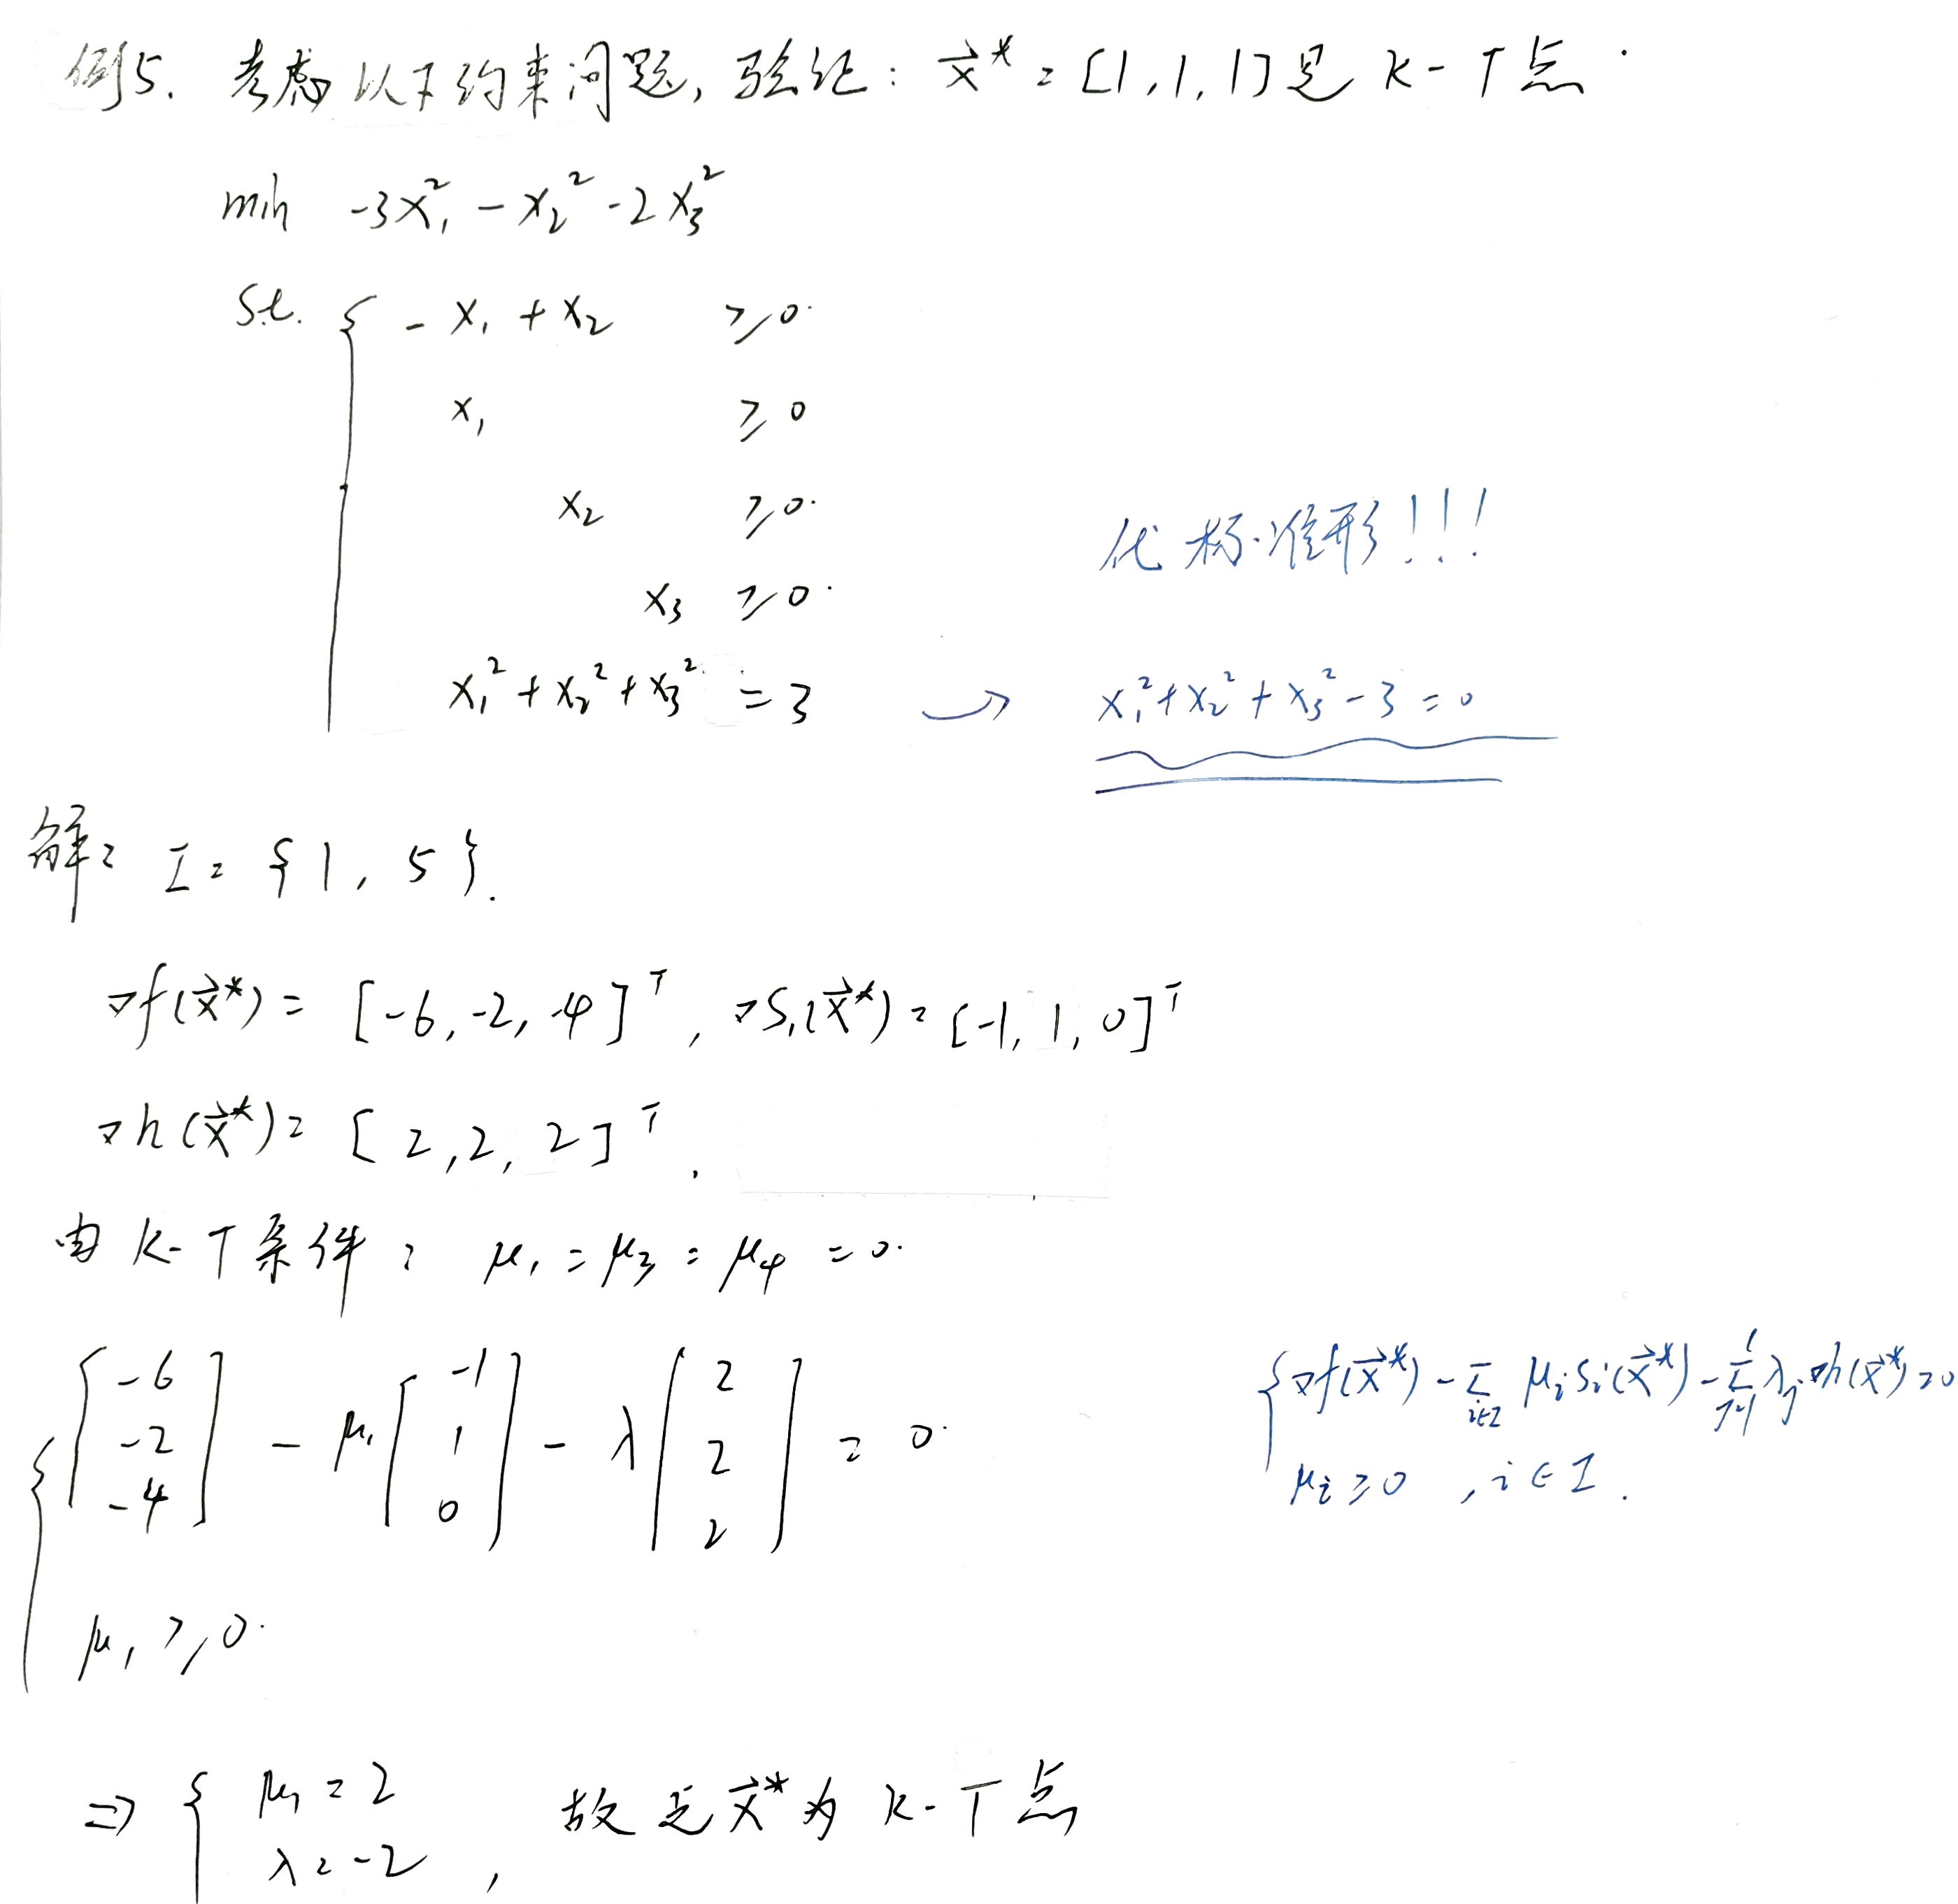 例5. 考虑以下约束问题, 验证: x⃗* = [1, 1, 1] 是 K-T点.
min -3x₁² - x₂² - 2x₃²
s.t. { -x₁ + x₂ ≥ 0.
x₁ ≥ 0
x₂ ≥ 0.
化标准形!!!
x₃ ≥ 0.
x₁² + x₂² + x₃² = 3 → x₁² + x₂² + x₃² - 3 = 0
解: I = {1, 5}.
∇f(x⃗*) = [-6, -2, -4]ᵀ, ∇S₁(x⃗*) = [-1, 1, 0]ᵀ
∇h(x⃗*) = [2, 2, 2]ᵀ.
由 K-T 条件: μ₁ = μ₃ = μ₄ = 0.
{ [-6 -2 -4] - μ₁ [-1 1 0] - λ [2 2 2] = 0.
μ₁ ≥ 0.
{ ∇f(x⃗*) - Σ_{i∈I} μᵢ Sᵢ(x⃗*) - Σ_{j=1}^{l} λⱼ ∇h(x⃗*) = 0
μᵢ ≥ 0, i ∈ I.
⇒ { μ₁ = 2
λ = -2, 故 x⃗* 为 K-T点